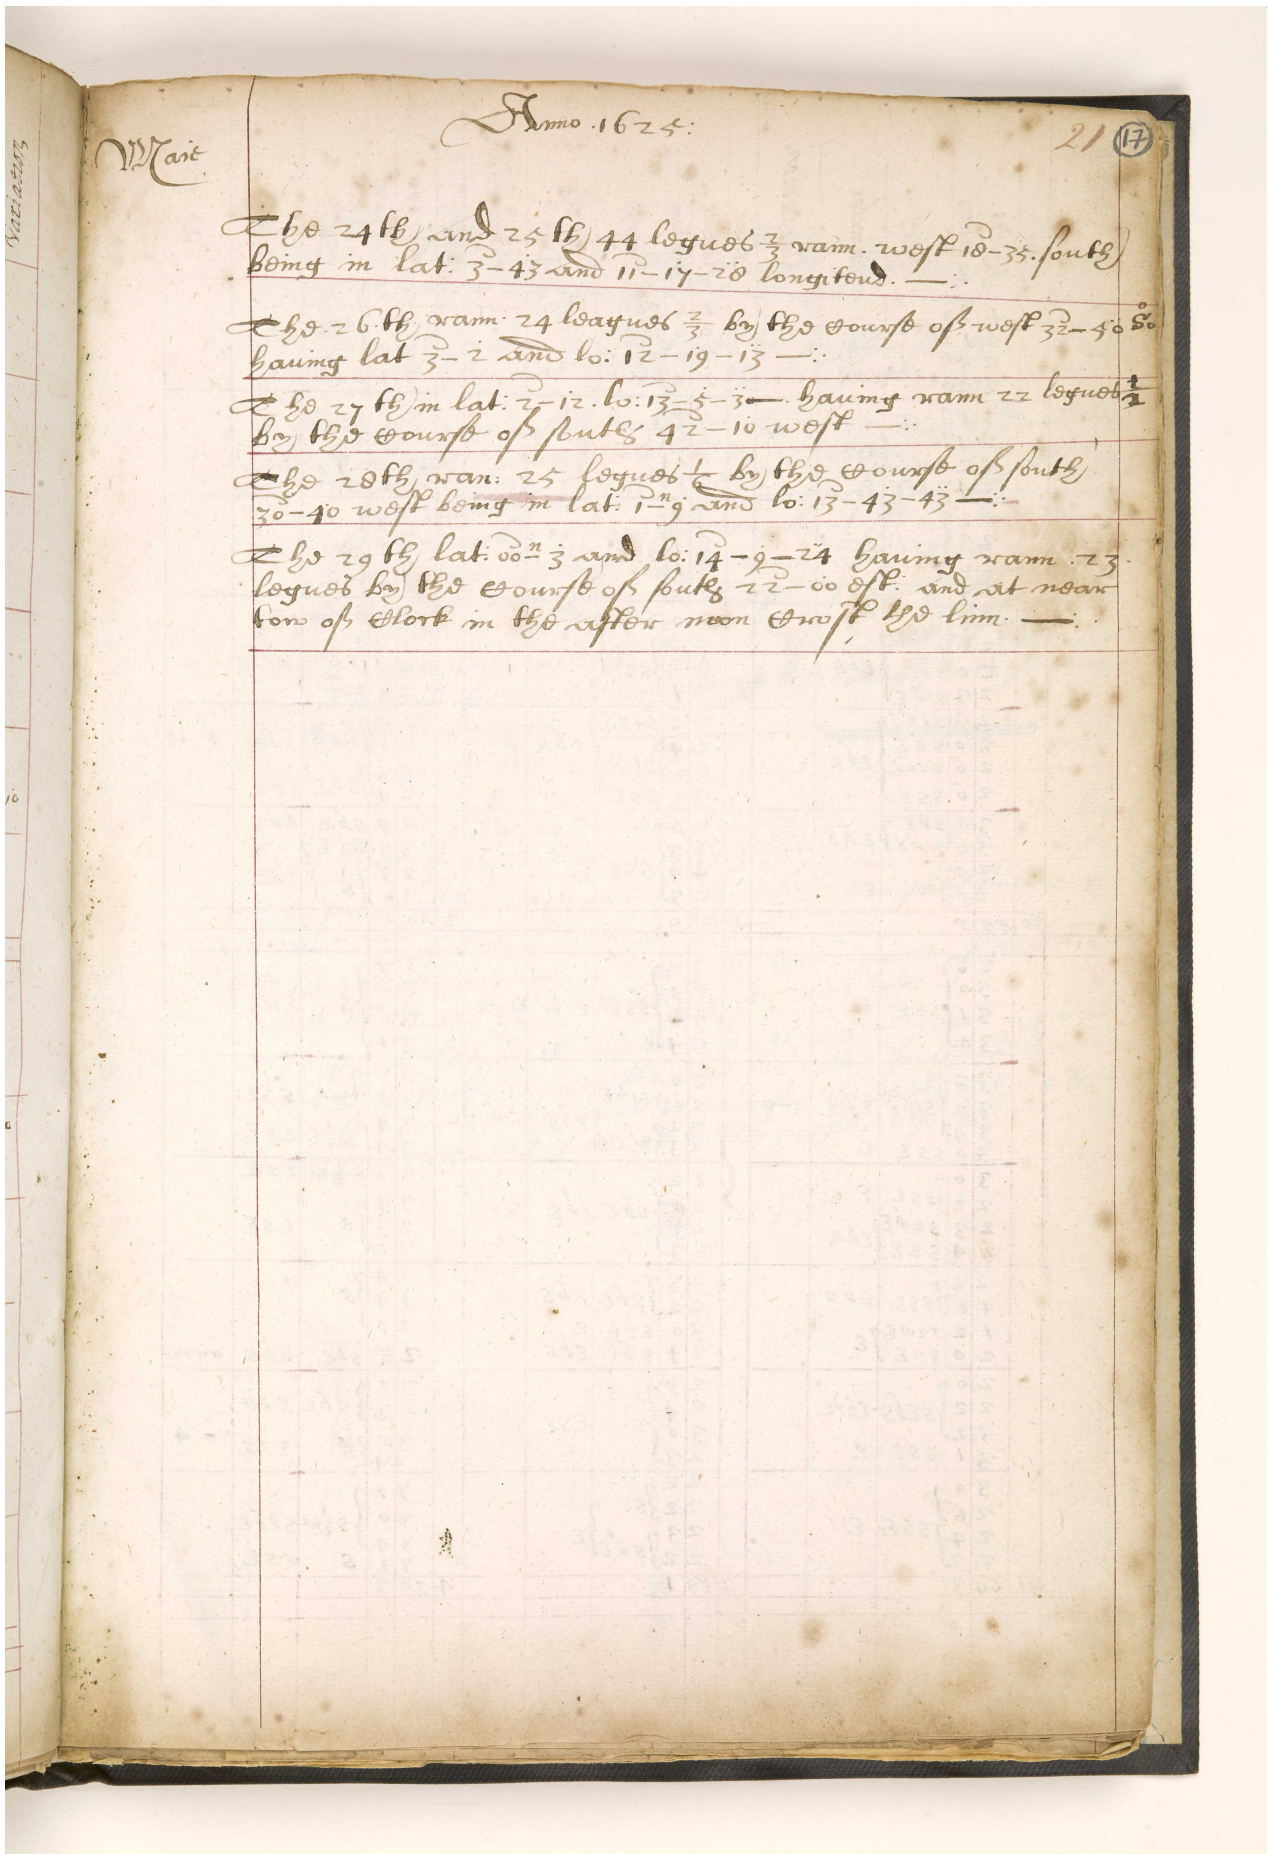 Variatio
Anno .1625:
21 17
Maie
The 24th and 25th 44 legues 2/3 rann. west 18-35. south
being in lat: 3-43 and 11-17-28 longiteud. —:.
The .26.th rann. 24 leagues 2/3 by the course off west 32-50 So
having lat 3-2 and lo: 12-19-13 —:.
The 27th in lat: 2-12. lo: 13-5-3 —. having rann 22 legues 1/2
by the course off south 42-10 west —:.
The 28th ran: 25 legues 1/2 by the course off south
30-40 west being in lat: 1-n9 and lo: 13-43-43 —:-
The 29th lat: 00n-3 and lo: 14-9-24 having rann .23.
legues by the course off south 22-00 est: and at near
tow off clock in the after noon crost the linn. —:.